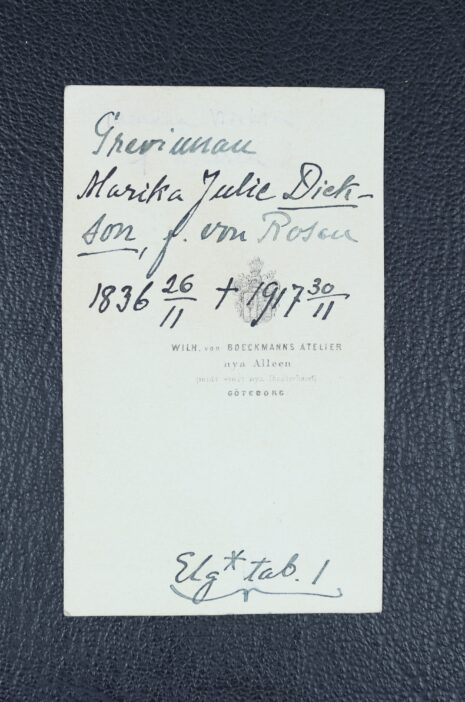 Grevinnan
Marika Julie Dick-
son, f. von Rosen
1836 26/11 + 1917 30/11
WILH. von BOECKMANNS ATELIER
nya Alleen
GÖTEBORG
Elg* tab. 1